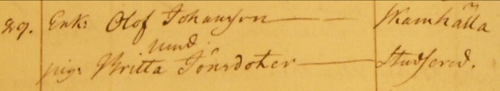 89. Enk: Olof Johansson — Skamhälla
und.
pig: Britta Jönsdoter — Studsered.